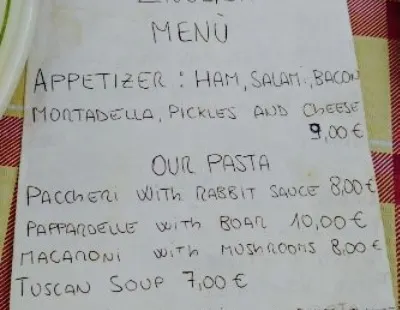 MENÙ
APPETIZER: HAM, SALAMI, BACON
MORTADELLA, PICKLES AND CHEESE
9,00 €
OUR PASTA
PACCHERI WITH RABBIT SAUCE 8,00 €
PAPPARDELLE WITH BOAR 10,00 €
MACARONI WITH MUSHROOMS 8,00 €
TUSCAN SOUP 7,00 €